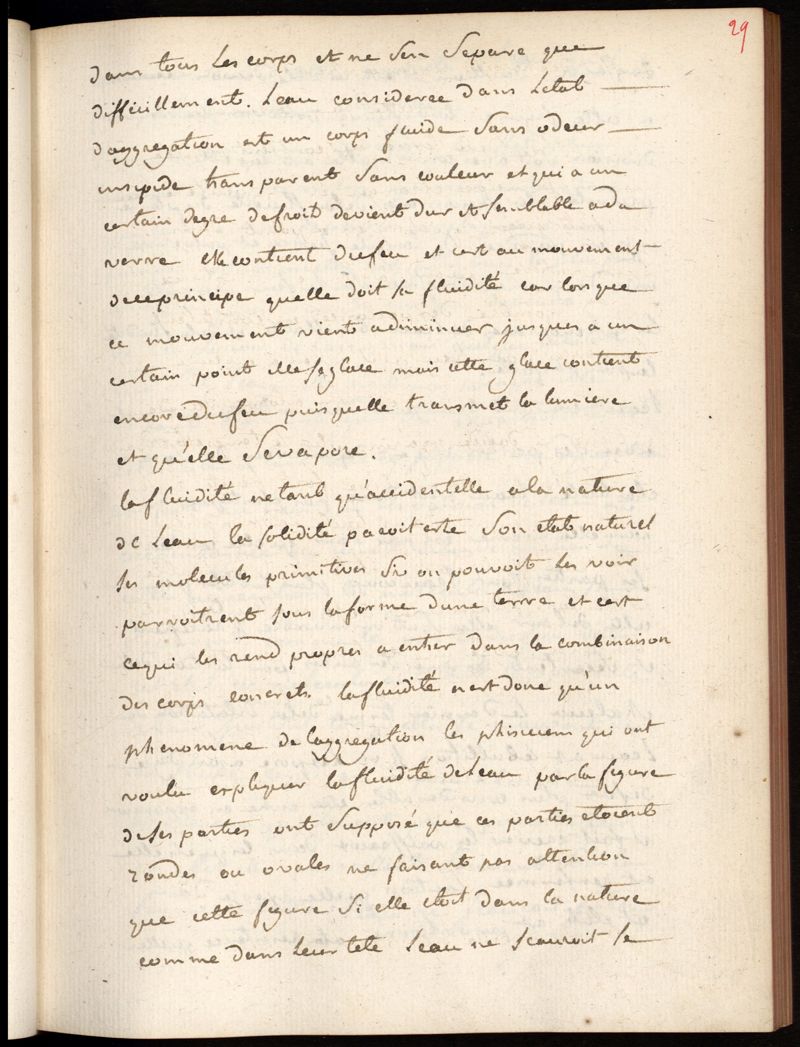 29
dans tous les corps et ne sen separe que
difficillement. Leau consideree dans Letat
daggregation est un corps fluide sans odeur
insipide transparent sans couleur et qui a un
certain degre de froid devient dur et semblable a du
verre elle contient du feu et cest au mouvement
de ce principe quelle doit sa fluidité car lors que
ce mouvement vient a diminuer jusques a un
certain point elle se glace mais cette glace contient
encore du feu puis quelle transmet la lumiere
et qu'elle sevapore.
la fluidité netant qu'accidentelle a la nature
de Leau la solidité paroit estre son etat naturel
ses molecules primitives si on pouvoit les voir
parroitrent sous la forme dune terre et cest
ce qui les rend propres a entrer dans la combinaison
des corps concrets. la fluidité nest donc qu'un
phenomene de laggregation les phisiciens qui ont
voulu expliquer la fluidité de Leau par la figure
de ses parties ont supposé que ces parties etoient
rondes ou ovales ne faisant pas attention
que cette figure si elle etoit dans la nature
comme dans leur tete Leau ne scauroit se